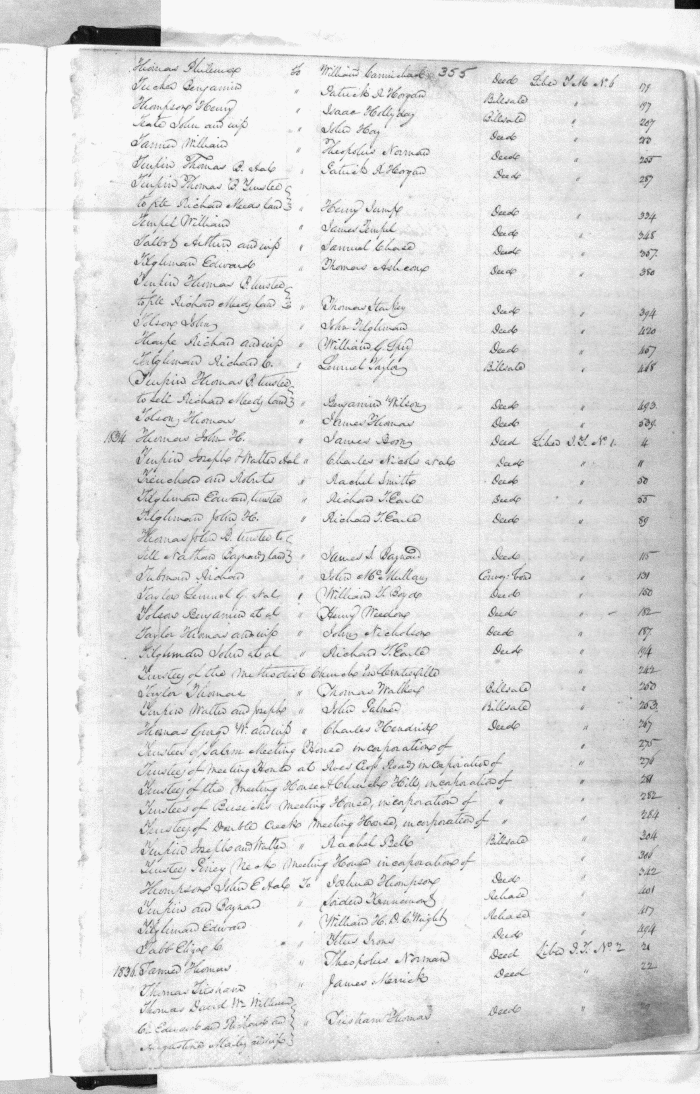 355
Thomas Philemon to William Carmichael Deed Liber T.M. No. 6 171
Tucker Benjamin " Patrick A Hogan Billsale " 197
Thompson Henry " Isaac Hollyday Billsale " 207
John and wife " John Hay Deed "
Tanner William " Theopolis Norman Deed " 255
Turpin Thomas B. " Patrick A Hogan Deed " 287
Turpin Thomas B. Trustee
to sell Richard land " Henry Jump Deed " 334
Tempel William " James Tempel Deed " 348
Talbot Arthur and wife " Samuel Chase Deed " 357
Tilghman Edward " Thomas Ashcom Deed " 380
Turpin Thomas B. trustee
to sell Richard land " Thomas Starkey Deed " 394
Tolson John " John Tilghman Deed " 420
Tharpe Richard and wife " William G. Deed " 467
Tilghman Richard C. " Lemuel Taylor Billsale " 468
Turpin Thomas B. trustee
to sell Richard land " Benjamin Wilson Deed " 493
Tolson Thomas " James Thomas Deed " 539
1834 Thomas John H. " James Deed Liber I.T. No. 1. 4
Turpin Joseph & Walter " Charles Nichs et al Deed " "
and Roberts " Rachel Smith Deed " 50
Tilghman Edward, trustee " Richard T. Earle Deed " 55
Tilghman John H. " Richard T. Earle Deed " 89
Thomas John trustee to
sell Nathan Baynard land " James S. Baynard Deed " 115
Tubman Richard " John McMullan Convey. bond " 131
Taylor Lemuel G. et al " William T. Boyde Deed " 150
Tolson Benjamin et al " Henry Weedon Deed " 182
Taylor Thomas and wife " John Nicholson Deed " 187
Tilghman John et al " Richard T. Earle Deed " 194
Trustees of the Methodist Church in Centreville " 242
Taylor Thomas " Thomas Walker Billsale " 250
Turpin Walter and Joseph " John Palmer Billsale " 253
Thomas George W. and wife " Charles Hendrick Deed " 267
Trustees of Salem Meeting House incorporations of " 275
Trustees of meeting House at Cross Roads incorporation of " 278
Trustees of the Meeting House at Church Hill, incorporation of " 281
Trustees of Meeting House, incorporation of " " 282
Trustees of Double Creek Meeting House, incorporation of " " 284
Turpin Joseph and Walter " Rachel Bell Billsale " 304
Trustees Piney Neck Meeting House incorporation of " 308
Thompson John E. to Joshua Thompson Deed " 342
Turpin and Baynard " Release " 401
Tilghman Edward " William H. D. C. Wright Release " 417
Tabb " Titus Irons Deed " 494
1836 Tanner Thomas " Theopolis Norman Deed Liber I.T. No. 2 21
Thomas Tilsham " James Merrick Deed " 22
Thomas David Wm. William
Edward and Richard and
Augustine and wife " Trusham Thomas Deed "